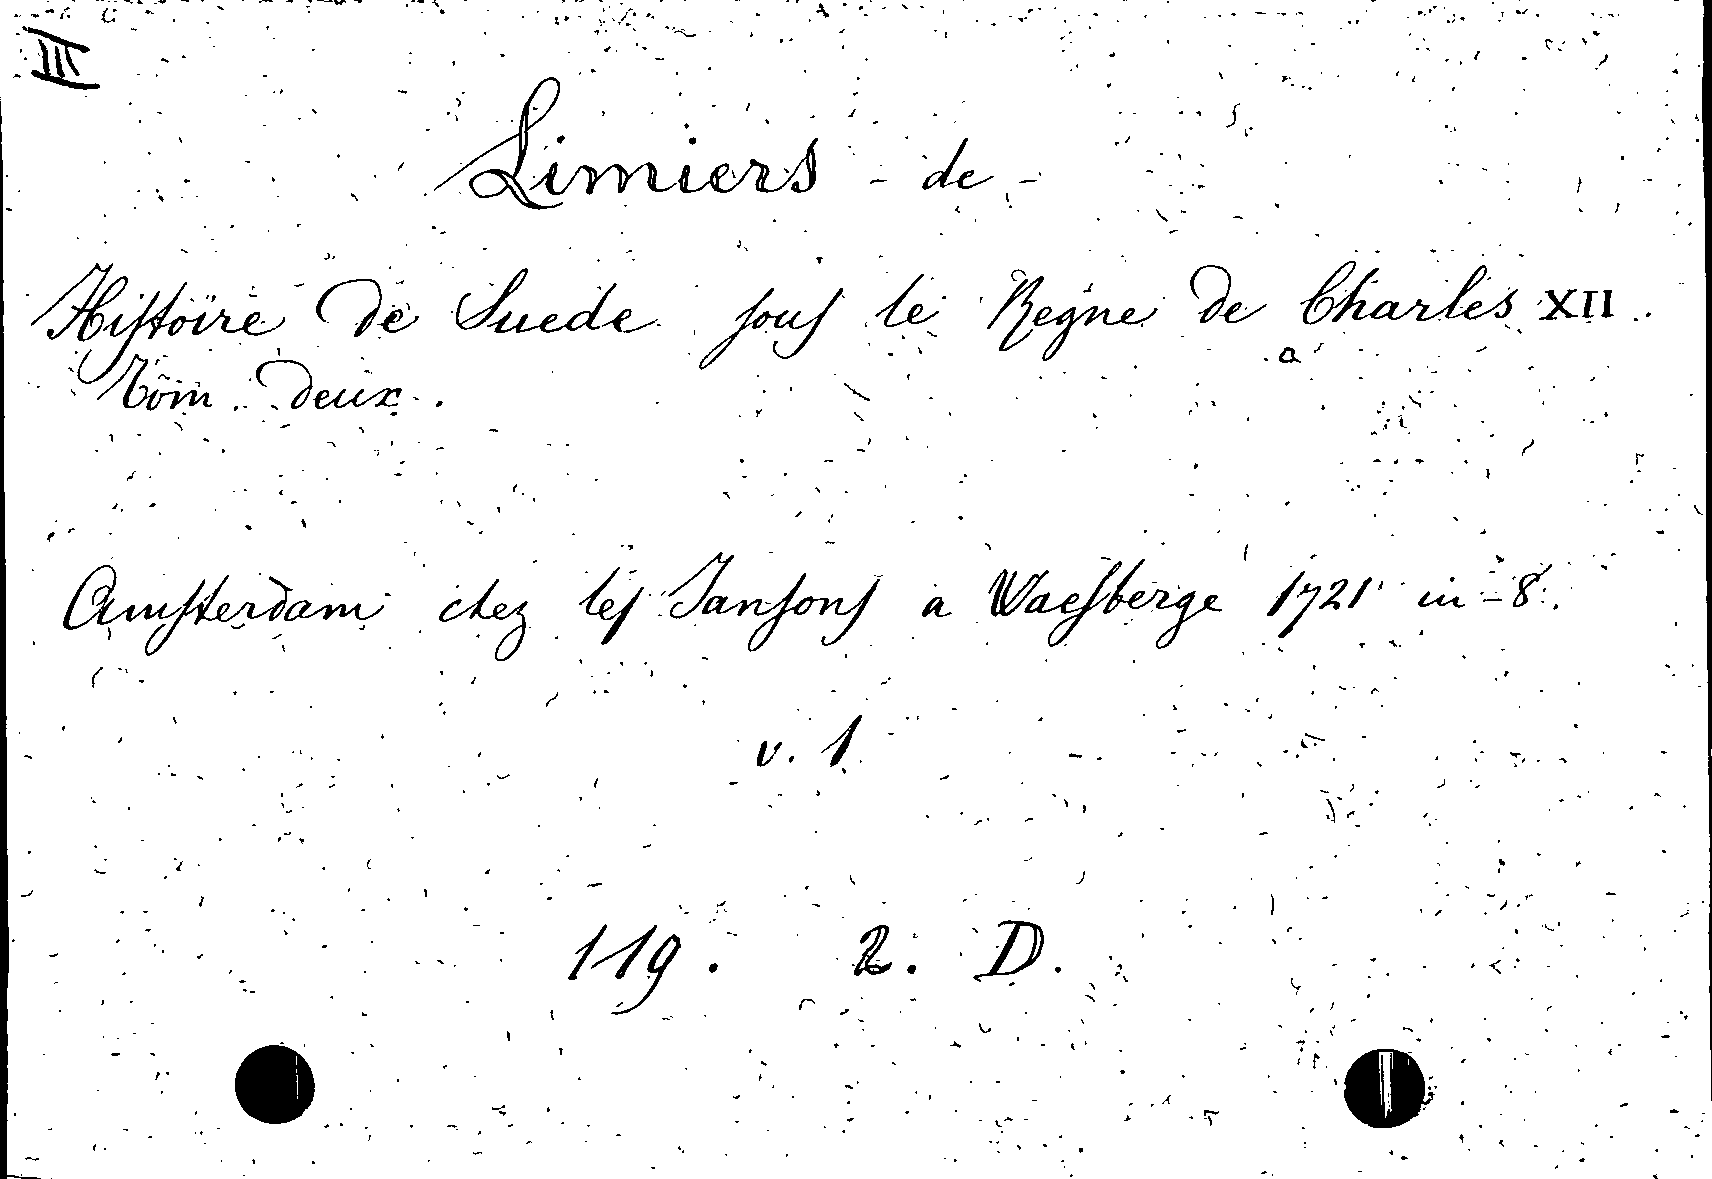 III
Limiers - de -
Hiſtoire de Suede ſouſ le Regne de Charles XII.
Tom. deux.
Amſterdam chez leſ Janſonſ a Waeſberge 1721 in-8.
v. 1
119. 2. D.